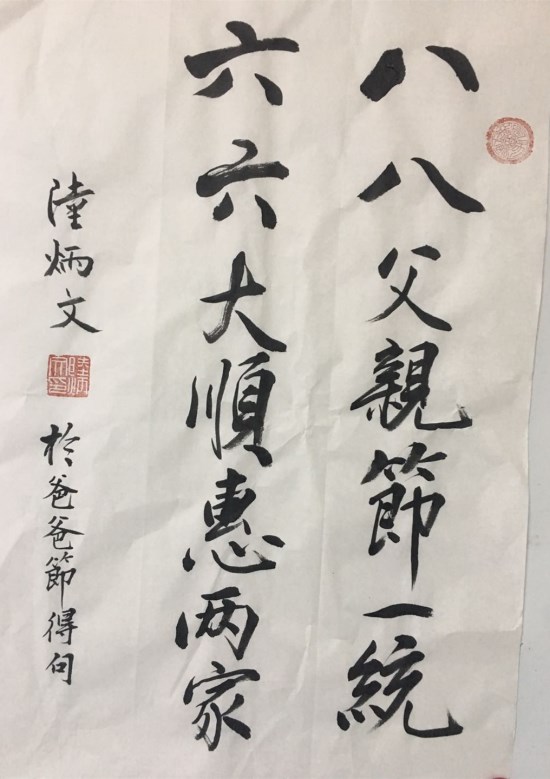 八八父親節一統
六六大順惠两家
陸炳文
於爸爸節得句